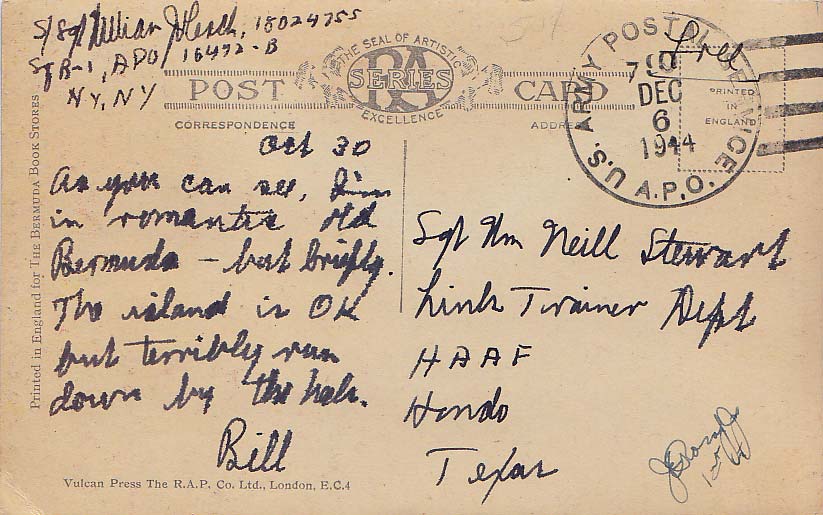 S/Sgt William J. Leach, 18024755
Sq B-1, APO 16472-B
NY, NY
Free
THE SEAL OF ARTISTIC
RA
SERIES
EXCELLENCE
POST CARD
CORRESPONDENCE
ADDRE
U.S. ARMY POSTAL SERVICE
A.P.O.
DEC
6
1944
PRINTED
IN
ENGLAND
Oct 30
As you can see, I'm
in romantic old
Bermuda – but briefly.
The island is OK
but terribly run
down by the
Bill
Sgt Wm Neill Stewart
Link Trainer Dept
HAAF
Hondo
Texas
Printed in England for The Bermuda Book Stores
Vulcan Press The R.A.P. Co. Ltd., London, E.C.4